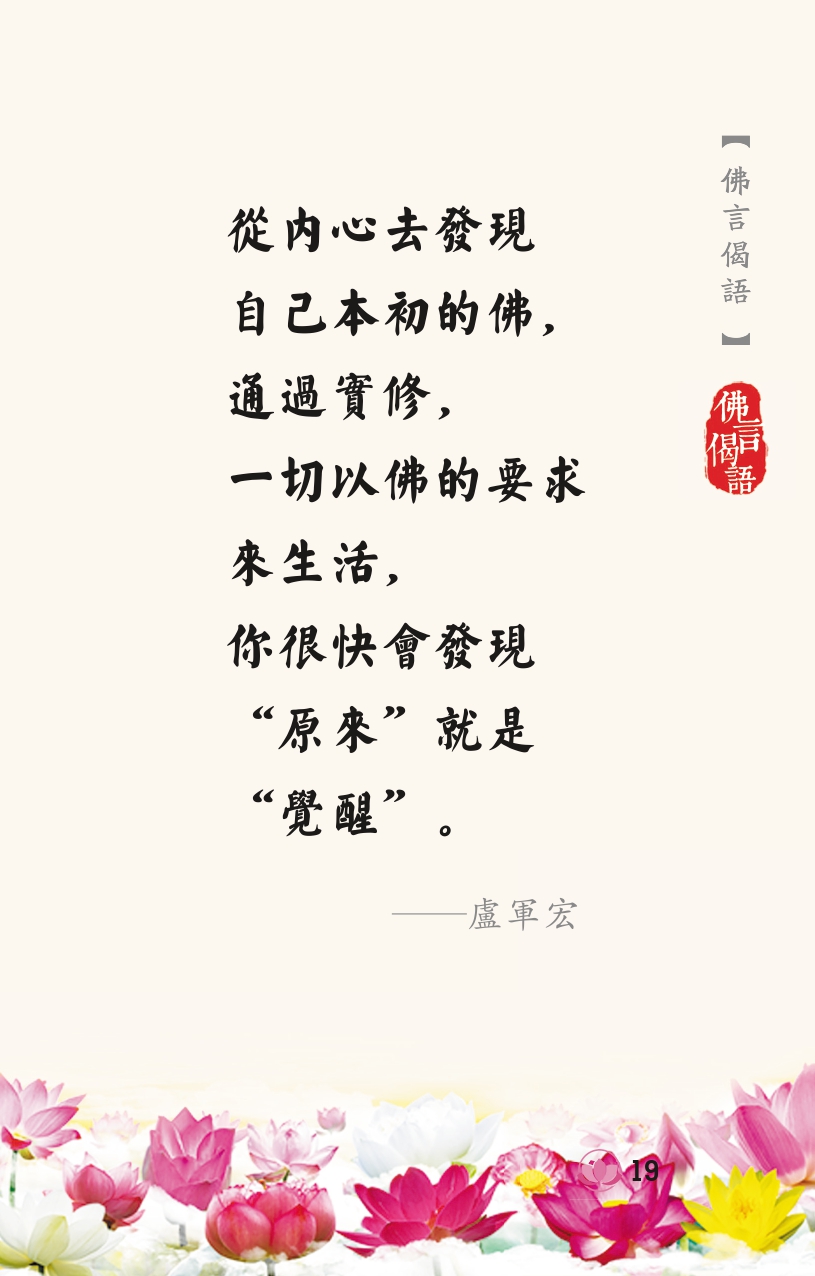 【佛言偈語】
佛言偈語
從内心去發現
自己本初的佛，
通過實修，
一切以佛的要求
來生活，
你很快會發現
“原來”就是
“覺醒”。
——盧軍宏
19